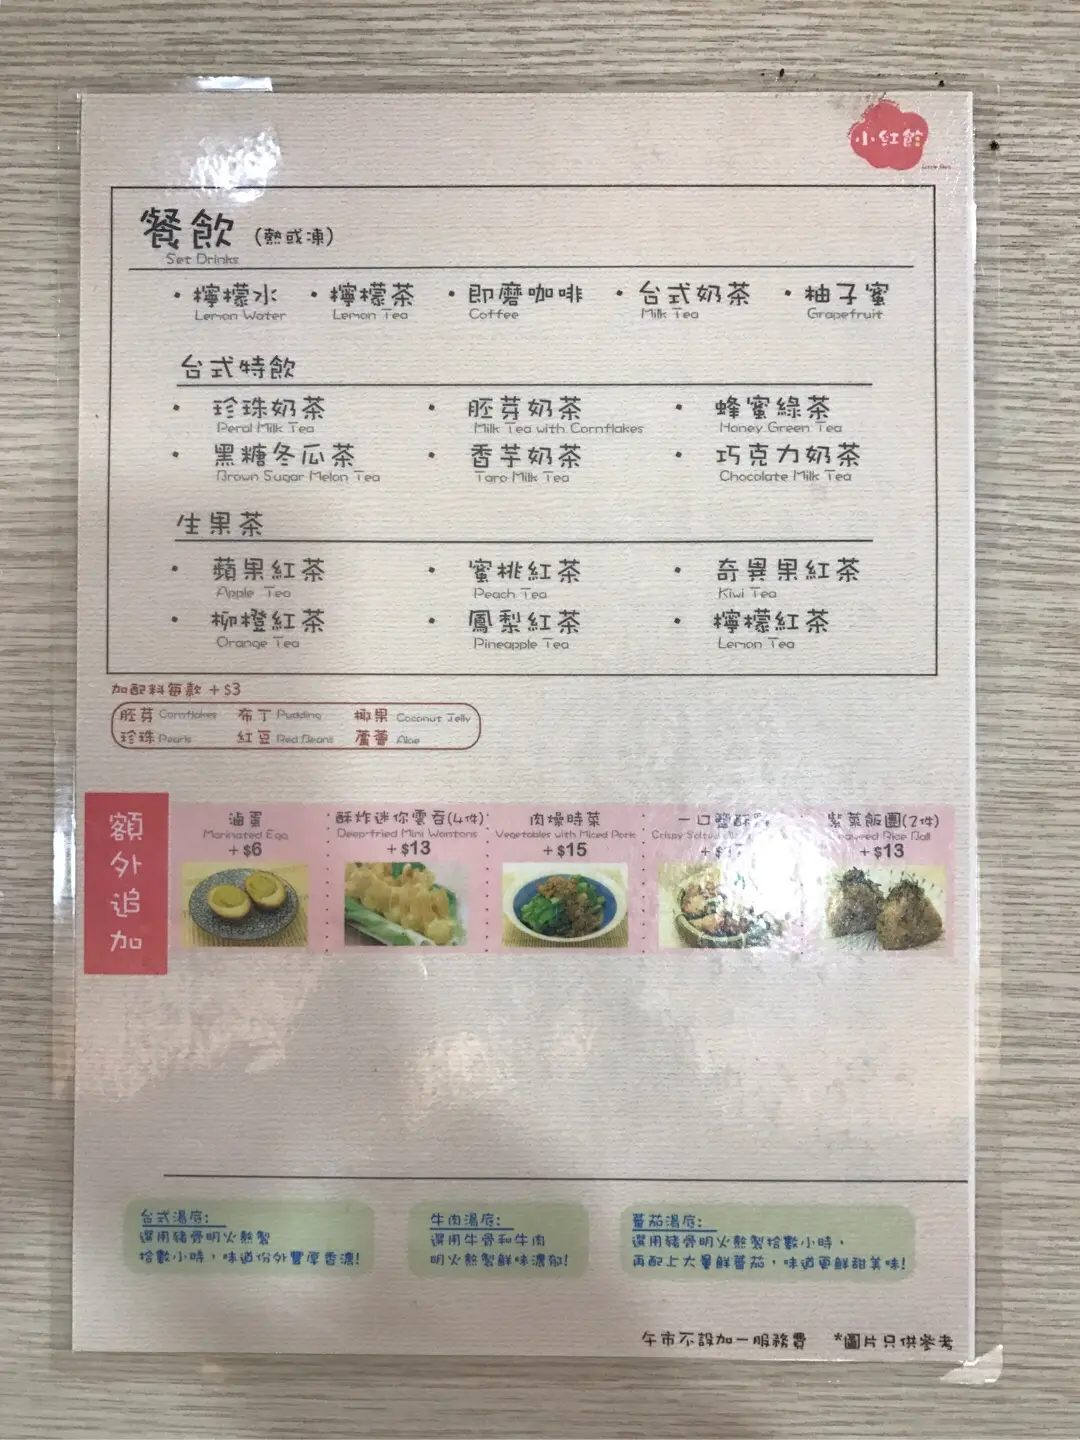 小紅館
餐飲 (熱或凍)
Set Drinks
・檸檬水 ・檸檬茶 ・即磨咖啡 ・台式奶茶 ・柚子蜜
Lemon Water Lemon Tea Coffee Milk Tea Grapefruit
台式特飲
・珍珠奶茶 ・胚芽奶茶 ・蜂蜜綠茶
Peral Milk Tea Milk Tea with Cornflakes Honey Green Tea
・黑糖冬瓜茶 ・香芋奶茶 ・巧克力奶茶
Brown Sugar Melon Tea Taro Milk Tea Chocolate Milk Tea
生果茶
・蘋果紅茶 ・蜜桃紅茶 ・奇異果紅茶
Apple Tea Peach Tea Kiwi Tea
・柳橙紅茶 ・鳳梨紅茶 ・檸檬紅茶
Orange Tea Pineapple Tea Lemon Tea
加配料每款 + $3
胚芽 Cornflakes 布丁 Pudding 椰果 Coconut Jelly
珍珠 Pearls 紅豆 Red Beans 蘆薈 Aloe
額外追加
滷蛋 酥炸迷你雲吞(4件) 肉燥時菜 一口鹽酥 紫菜飯團(2件)
Marinated Egg Deep-fried Mini Wontons Vegetables with Miced Pork Crispy Salted Rice Ball
+ $6 + $13 + $15 + $13
台式湯底: 牛肉湯底: 蕃茄湯底:
選用豬骨明火熬製 選用牛骨和牛肉 選用豬骨明火熬製拾數小時，
拾數小時，味道份外豐厚香濃! 明火熬製鮮味濃郁! 再配上大量鮮蕃茄，味道更鮮甜美味!
午市不設加一服務費 *圖片只供參考